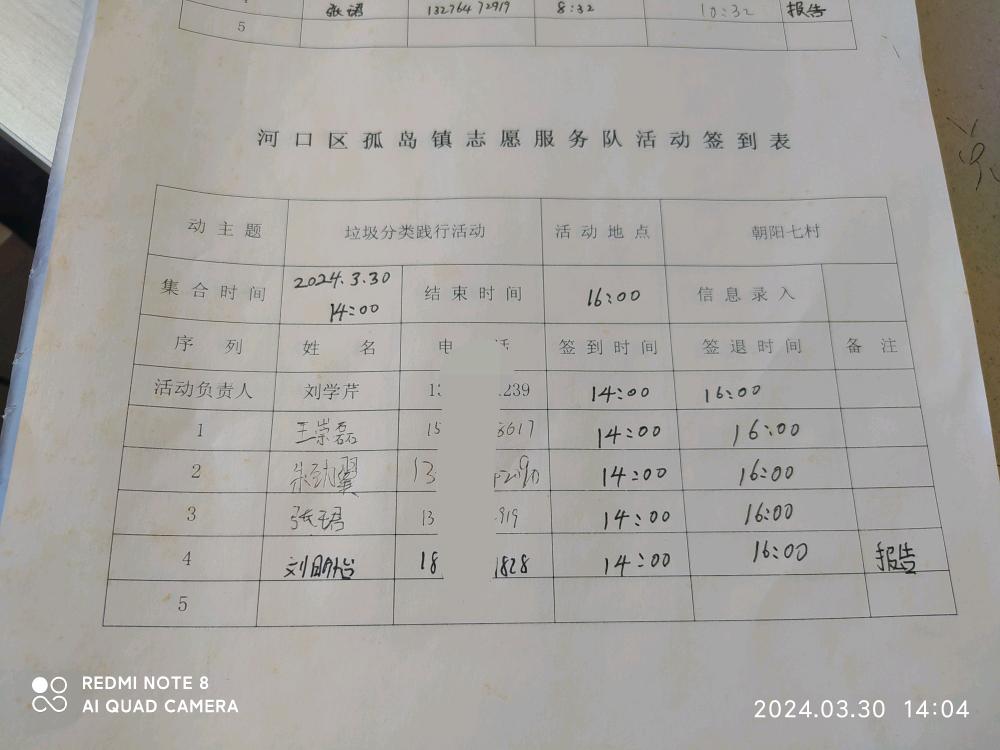 张珺 13276472919 8:32 10:32 报告
5
河口区孤岛镇志愿服务队活动签到表
动主题 垃圾分类践行活动 活动地点 朝阳七村
集合时间 2024.3.30 14:00 结束时间 16:00 信息录入
序列 姓名 电 签到时间 签退时间 备注
活动负责人 刘学芹 13 239 14:00 16:00
1 王崇磊 15 3617 14:00 16:00
2 朱劲翼 13 14:00 16:00
3 张珺 13 919 14:00 16:00
4 18 1828 14:00 16:00 报告
5
REDMI NOTE 8
AI QUAD CAMERA
2024.03.30 14:04